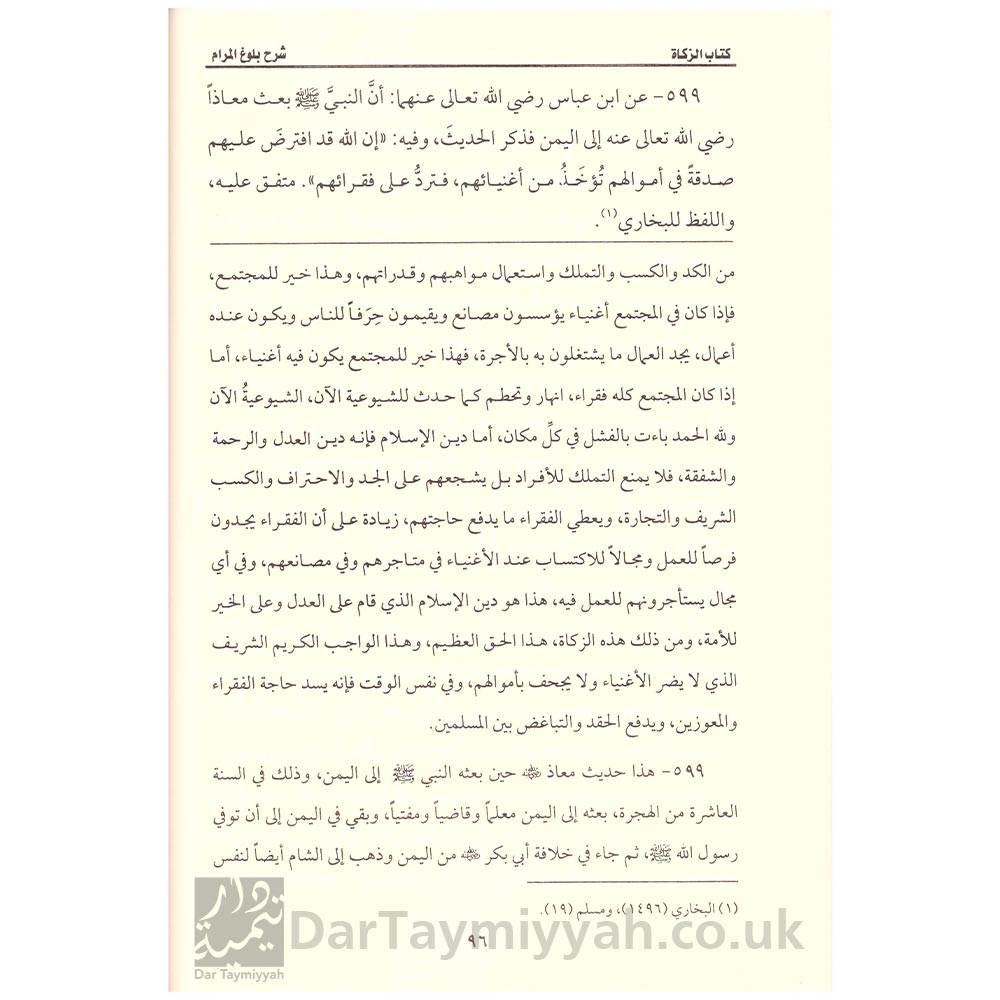 كتاب الزكاة
شرح بلوغ المرام
٥٩٩- عن ابن عباس رضي الله تعالى عنهما: أنَّ النبيَّ ﷺ بعث معاذاً
رضي الله تعالى عنه إلى اليمن فذكر الحديثَ، وفيه: «إن الله قد افترضَ عليهم
صدقةً في أموالهم تُؤخَذُ من أغنيائهم، فتردُّ على فقرائهم». متفق عليه،
واللفظ للبخاري(١).
من الكد والكسب والتملك واستعمال مواهبهم وقدراتهم، وهذا خير للمجتمع،
فإذا كان في المجتمع أغنياء يؤسسون مصانع ويقيمون حِرَفاً للناس ويكون عنده
أعمال، يجد العمال ما يشتغلون به بالأجرة، فهذا خير للمجتمع يكون فيه أغنياء، أما
إذا كان المجتمع كله فقراء، انهار وتحطم كما حدث للشيوعية الآن، الشيوعيةُ الآن
ولله الحمد باءت بالفشل في كلِّ مكان، أما دين الإسلام فإنه دين العدل والرحمة
والشفقة، فلا يمنع التملك للأفراد بل يشجعهم على الجد والاحتراف والكسب
الشريف والتجارة، ويعطي الفقراء ما يدفع حاجتهم، زيادة على أن الفقراء يجدون
فرصاً للعمل ومجالاً للاكتساب عند الأغنياء في متاجرهم وفي مصانعهم، وفي أي
مجال يستأجرونهم للعمل فيه، هذا هو دين الإسلام الذي قام على العدل وعلى الخير
للأمة، ومن ذلك هذه الزكاة، هذا الحق العظيم، وهذا الواجب الكريم الشريف
الذي لا يضر الأغنياء ولا يجحف بأموالهم، وفي نفس الوقت فإنه يسد حاجة الفقراء
والمعوزين، ويدفع الحقد والتباغض بين المسلمين.
٥٩٩- هذا حديث معاذ رضي الله عنه حين بعثه النبي ﷺ إلى اليمن، وذلك في السنة
العاشرة من الهجرة، بعثه إلى اليمن معلماً وقاضياً ومفتياً، وبقي في اليمن إلى أن توفي
رسول الله ﷺ، ثم جاء في خلافة أبي بكر رضي الله عنه من اليمن وذهب إلى الشام أيضاً لنفس
(١) البخاري (١٤٩٦)، ومسلم (١٩).
٩٦
دار تيمية
Dar Taymiyyah
DarTaymiyyah.co.uk